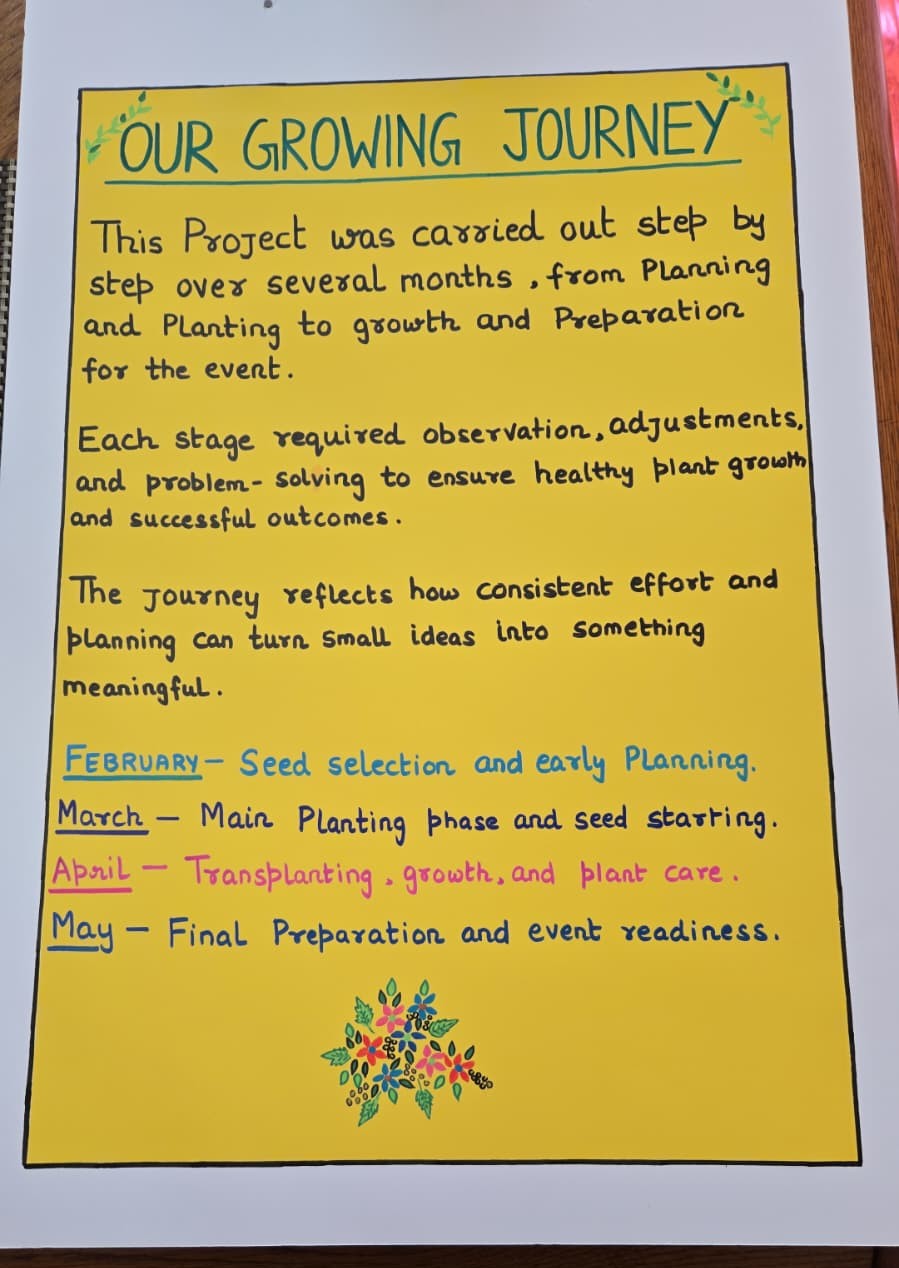 OUR GROWING JOURNEY
This Project was carried out step by
step over several months, from Planning
and Planting to growth and Preparation
for the event.
Each stage required observation, adjustments,
and problem-solving to ensure healthy plant growth
and successful outcomes.
The Journey reflects how consistent effort and
planning can turn small ideas into something
meaningful.
FEBRUARY - Seed selection and early Planning.
March - Main Planting phase and seed starting.
April - Transplanting, growth, and plant care.
May - Final Preparation and event readiness.